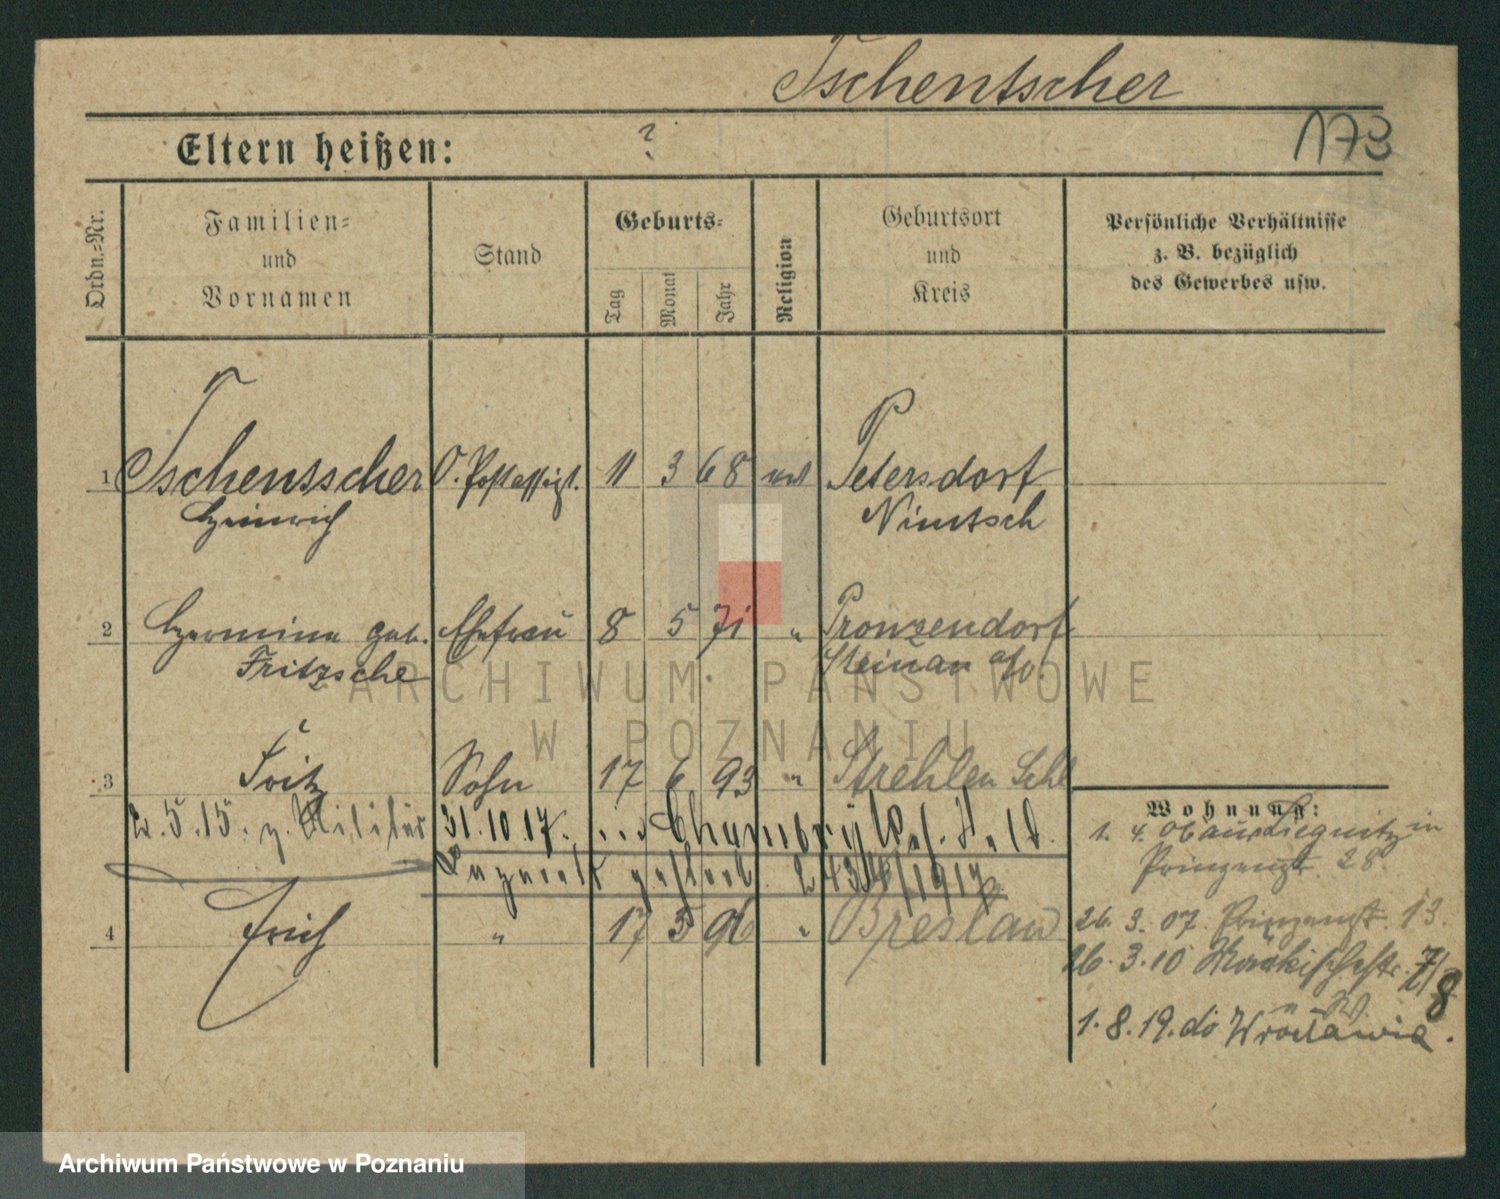 Tschentscher
173
Eltern heißen: ?
Ordn.-Nr.
Familien-
und
Vornamen
Stand
Geburts-
Tag
Monat
Jahr
Religion
Geburtsort
und
Kreis
Persönliche Verhältnisse
z. B. bezüglich
des Gewerbes usw.
1 Tschentscher O. Postassist. 11 3 68 Petersdorf
Heinrich Nimtsch
2 Hermine geb. Ehefrau 8 5 71 " Pronzendorf
Fritzsche Steinau a/o.
ARCHIWUM PAŃSTWOWE
W POZNANIU
3 Fritz Sohn 17 6 93 " Strehlen Schl
5. 15. z. Militär 31. 10. 17.
Lazarett 1917
4 Erich " 17 3 96 " Breslau
Wohnung:
1. 4. 06 aus Liegnitz in
Prinzenst. 28.
26. 3. 07. Prinzenst. 13.
26. 3. 10 7/8
1. 8. 19. do Wrocławia.
Archiwum Państwowe w Poznaniu